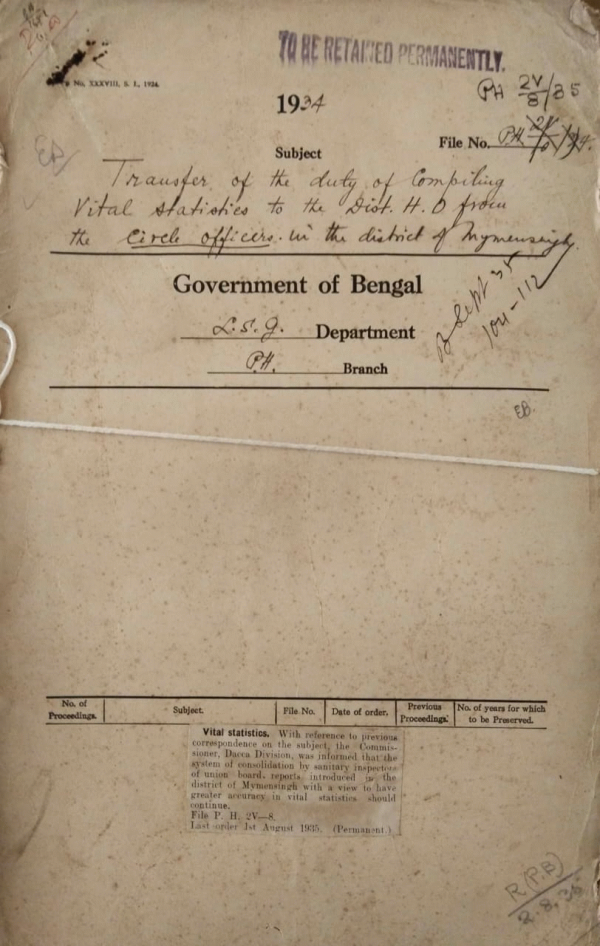 TO BE RETAINED PERMANENTLY.
No. XXXVIII, S. I., 1924.
PH 2V/8/35
1934
File No. P.H.
Subject
EB
Transfer of the duty of Compiling
Vital statistics to the Dist. H. O from
the Circle officers in the district of Mymensingh.
Government of Bengal
L.S.G. Department
B Sept 35
104-112
P.H. Branch
EB.
No. of Proceedings. Subject. File No. Date of order. Previous Proceedings. No. of years for which to be Preserved.
Vital statistics. With reference to previous
correspondence on the subject, the Commis-
sioner, Dacca Division, was informed that the
system of consolidation by sanitary inspectors
of union board reports introduced in the
district of Mymensingh with a view to have
greater accuracy in vital statistics should
continue.
File P. H. 2V—8.
Last order 1st August 1935. (Permanent.)
R(P.B)
2.8.35